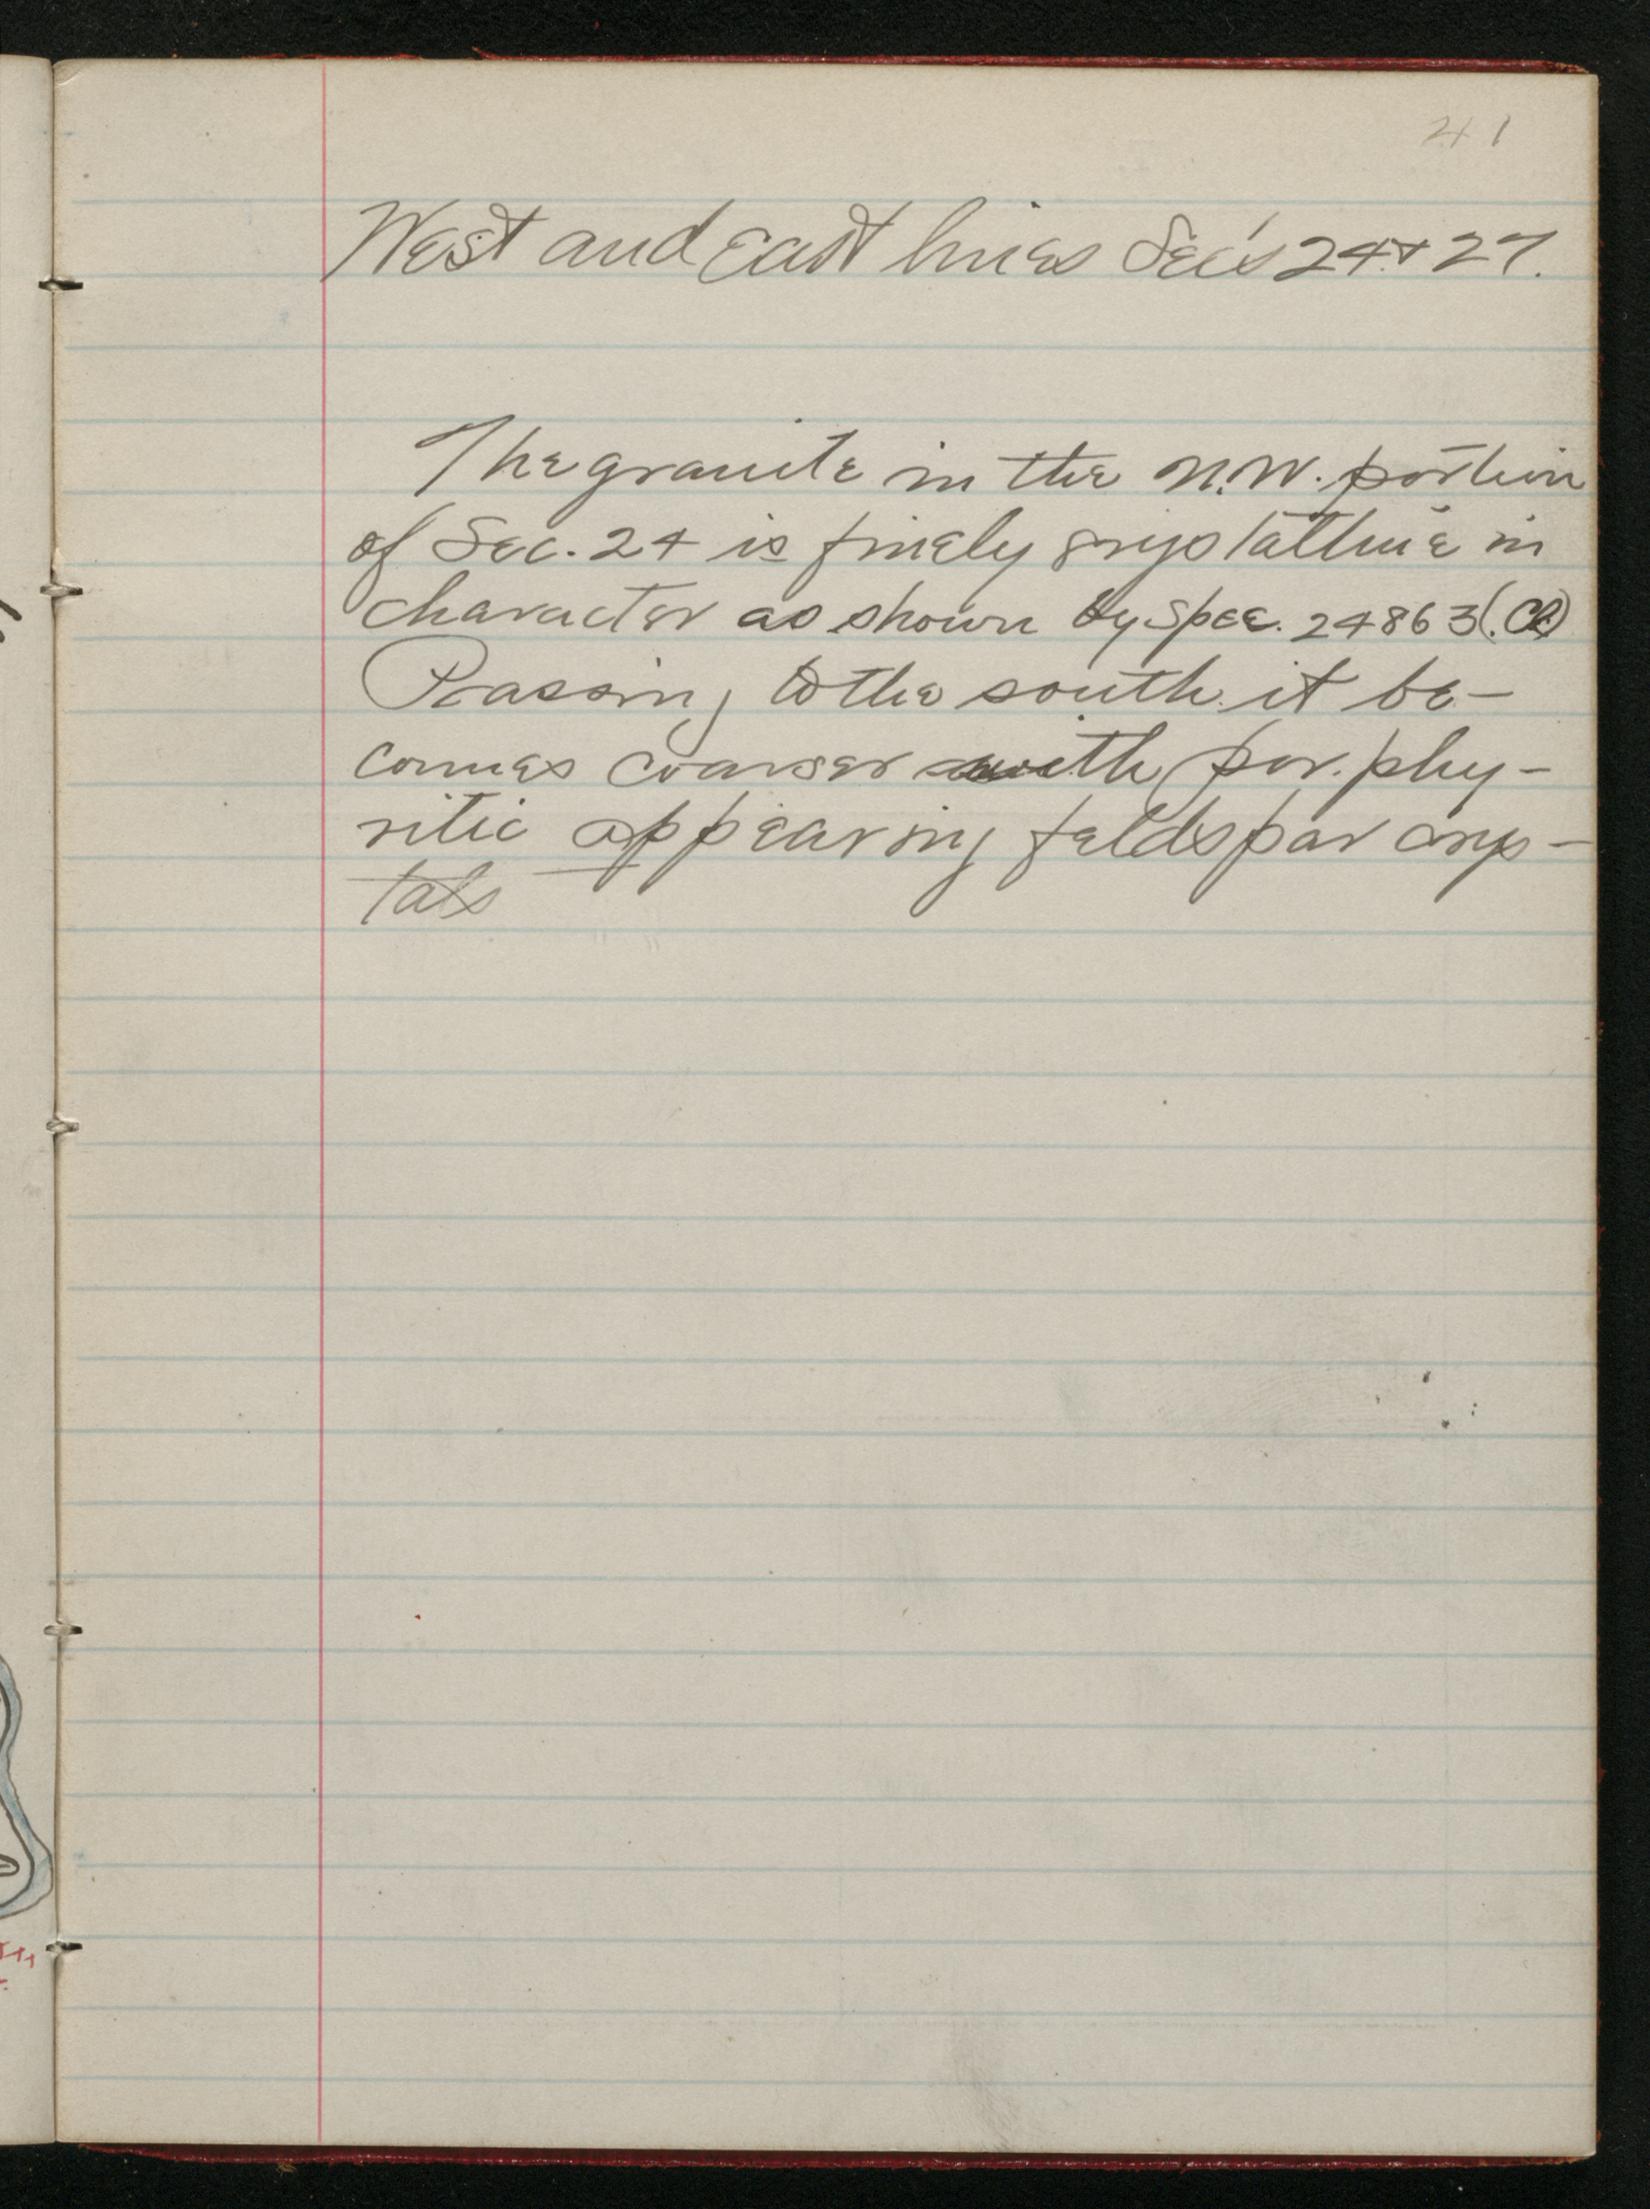 41
West and East lines Sec's 24 & 27.
The granite in the N.W. portion
of Sec. 24 is finely crystalline in
character as shown by Spec. 24863(.)
Passing to the south it be-
comes coarser with por.phy-
ritic appearing feldspar crys-
tals